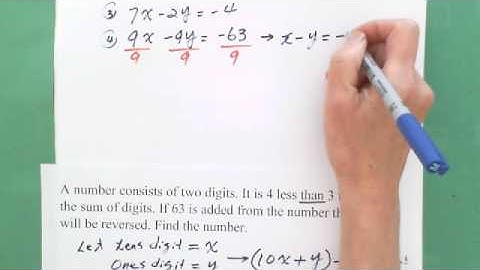 ③ 7x-2y=-4
④ 9x -9y = -63 → x-y=-
9 9 9
A number consists of two digits. It is 4 less than 3
the sum of digits. If 63 is added from the number
will be reversed. Find the number.
Let tens digit = x
Ones digit = y → (10x+y)-